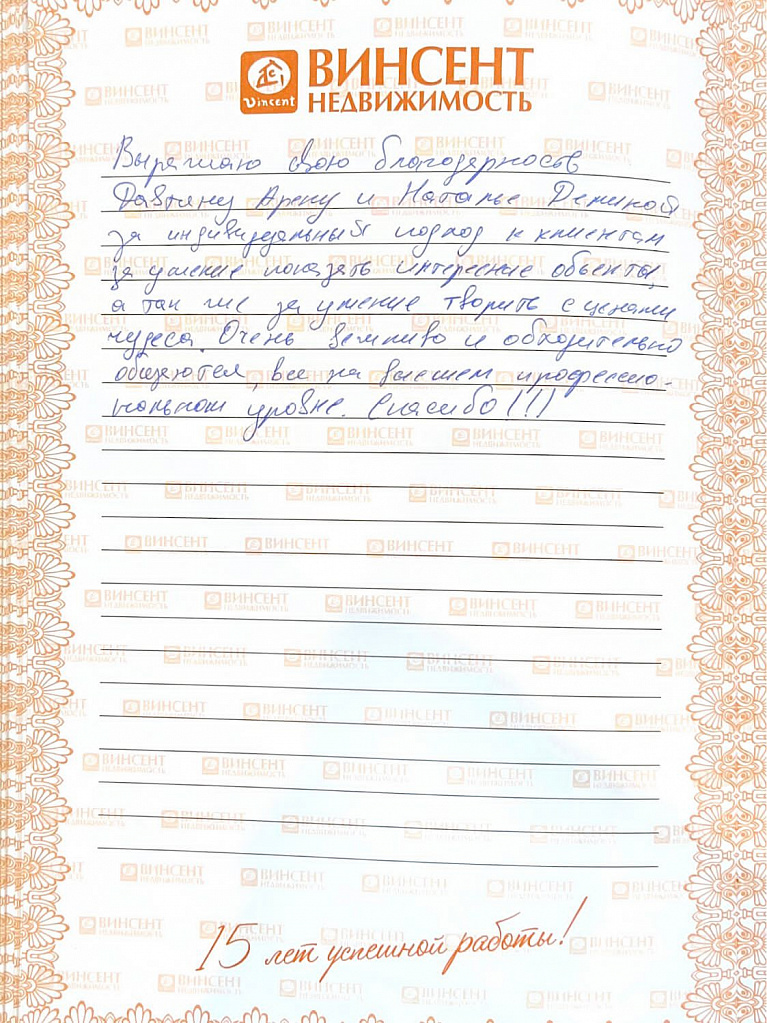 ВИНСЕНТ
НЕДВИЖИМОСТЬ
Vincent
Выражаю свою благодарность
Давтяну Арену и Наталье Деминой
за индивидуальный подход к клиентам
за умение показать интересные объекты,
а так же за умение творить с ценами
чудеса. Очень вежливо и обходительно
общаются, все на высшем профессио-
нальном уровне. Спасибо!!!
15 лет успешной работы!